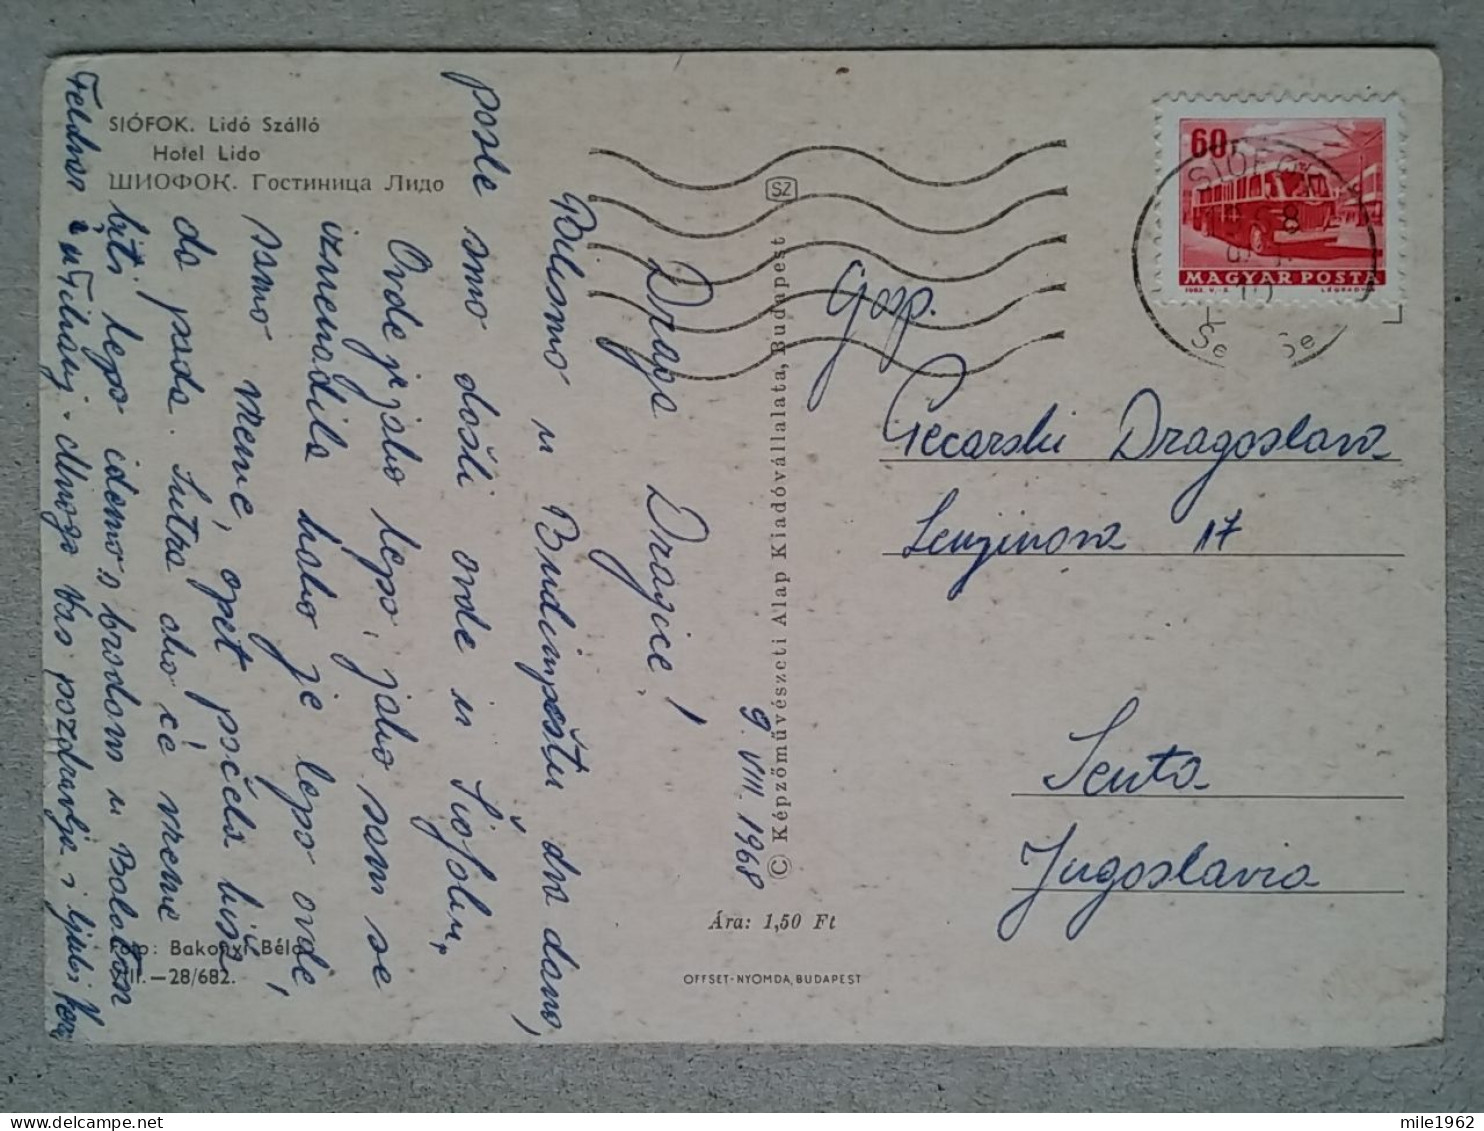 SIÓFOK. Lidó Szálló
Hotel Lido
ШИОФОК. Гостиница Лидо
9. VIII. 1968
Draga Dragice!
Bili smo u Budimpeštu dva dana,
posle smo došli ovde u Siofoku,
Ovde je jako lepo, jako sam se
iznenadila kako je lepo ovde,
ismo vreme, opet počela kiša
da pada. Sutra ako će vreme
biti lepo idemo s brodom u Balaton
u Tihanj. Mnogo vas pozdravlja i ljubi
Foto: Bakonyi Béla
VII.—28/682.
SZ
© Képzőművészeti Alap Kiadóvállalata, Budapest
Ára: 1,50 Ft
OFFSET-NYOMDA, BUDAPEST
60f
MAGYAR POSTA
SIÓFOK
Gosp.
Pecarski Dragoslava
Lenjinova 17
Senta
Jugoslavia
mile1962